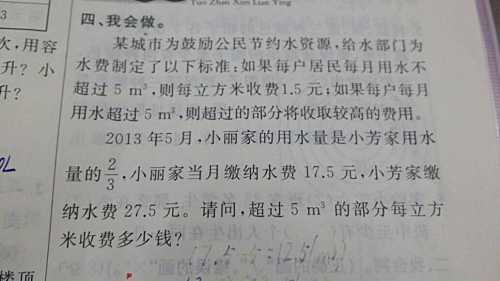 Tuo Zhan Xun Lian Ying
3
四、我会做。
次，用容
某城市为鼓励公民节约水资源，给水部门为
升？小
水费制定了以下标准：如果每户居民每月用水不
升？
超过 5 m³，则每立方米收费1.5 元；如果每户每月
用水超过 5 m³，则超过的部分将收取较高的费用。
2013 年5 月，小丽家的用水量是小芳家用水
量的 2/3，小丽家当月缴纳水费 17.5 元，小芳家缴
纳水费 27.5 元。请问，超过 5 m³ 的部分每立方
米收费多少钱？
楼顶